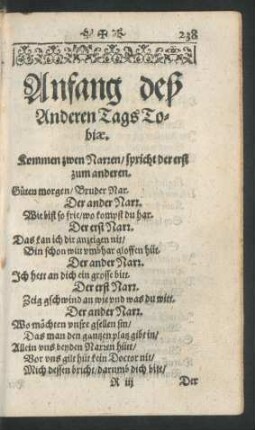 238
Anfang deß
Anderen Tags To-
biæ.
Kommen zwen Narren/ spricht der erst
zum anderen.
Güten morgen/ Bruder Nar.
Der ander Narr.
Wie bist so frü/ wo kompst du har.
Der erst Narr.
Das kan ich dir anzeigen nit/
Bin schon wüt umbhar gloffen hüt.
Der ander Narr.
Ich hett an dich ein grosse bitt.
Der erst Narr.
Zeig gschwind an wie und was du witt.
Der ander Narr.
Wo möchten unsre gsellen sin/
Das man den gantzen platz gibt in/
Allein uns beyden Narren hütt/
Vor uns gilt hüt kein Doctor nit/
Mich dessen bricht/ darumb dich bitt/
R iij Der